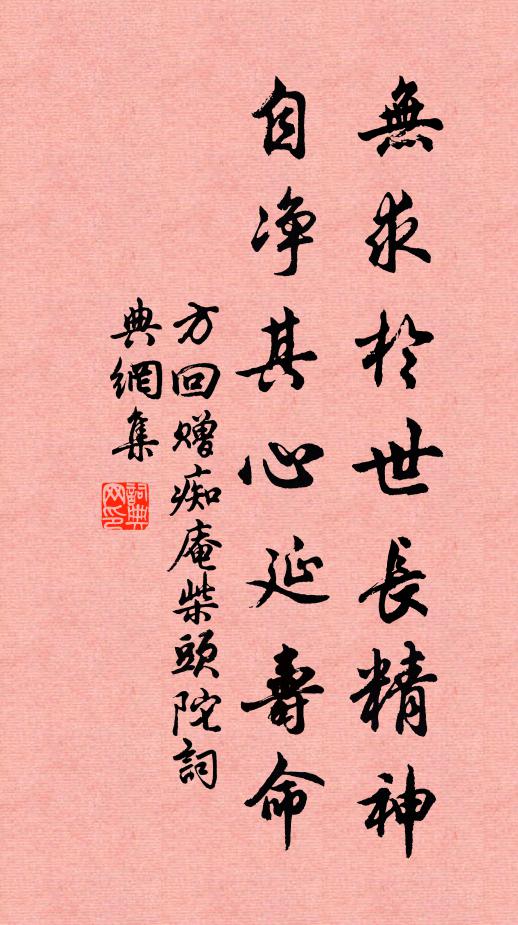 無求於世長精神
自净其心延壽命
方回赠痴庵柴頭陀詞
典網集
詞典网印